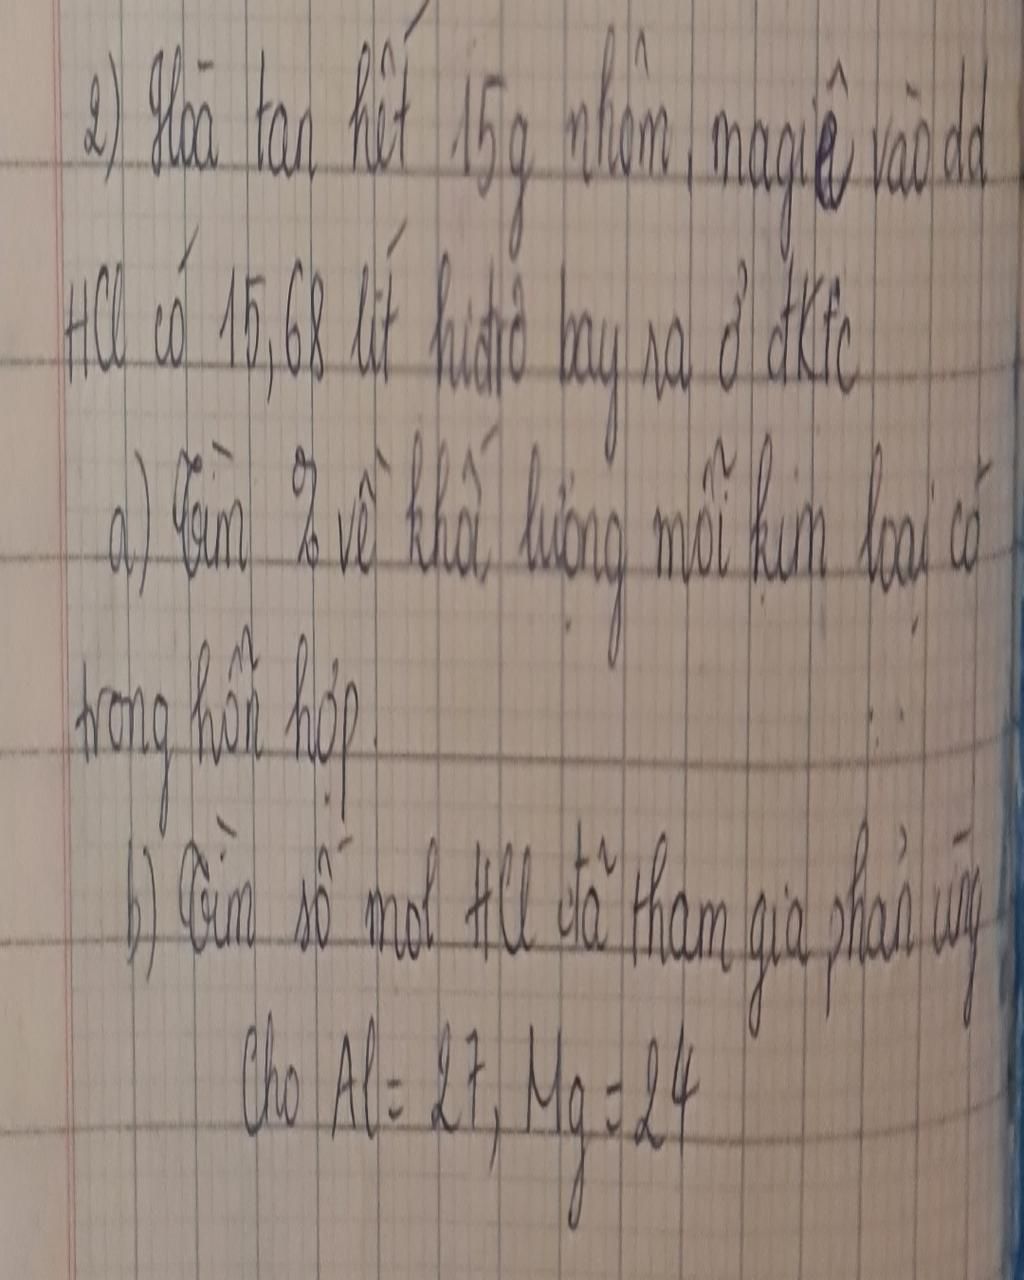 2) Hoà tan hết 15g nhôm, magiê vào dd
HCl có 15,68 lít hiđrô bay ra ở đktc
a) Tìm % về khối lượng mỗi kim loại có
trong hỗn hợp.
b) Tìm số mol HCl đã tham gia phản ứng
Cho Al = 27, Mg = 24